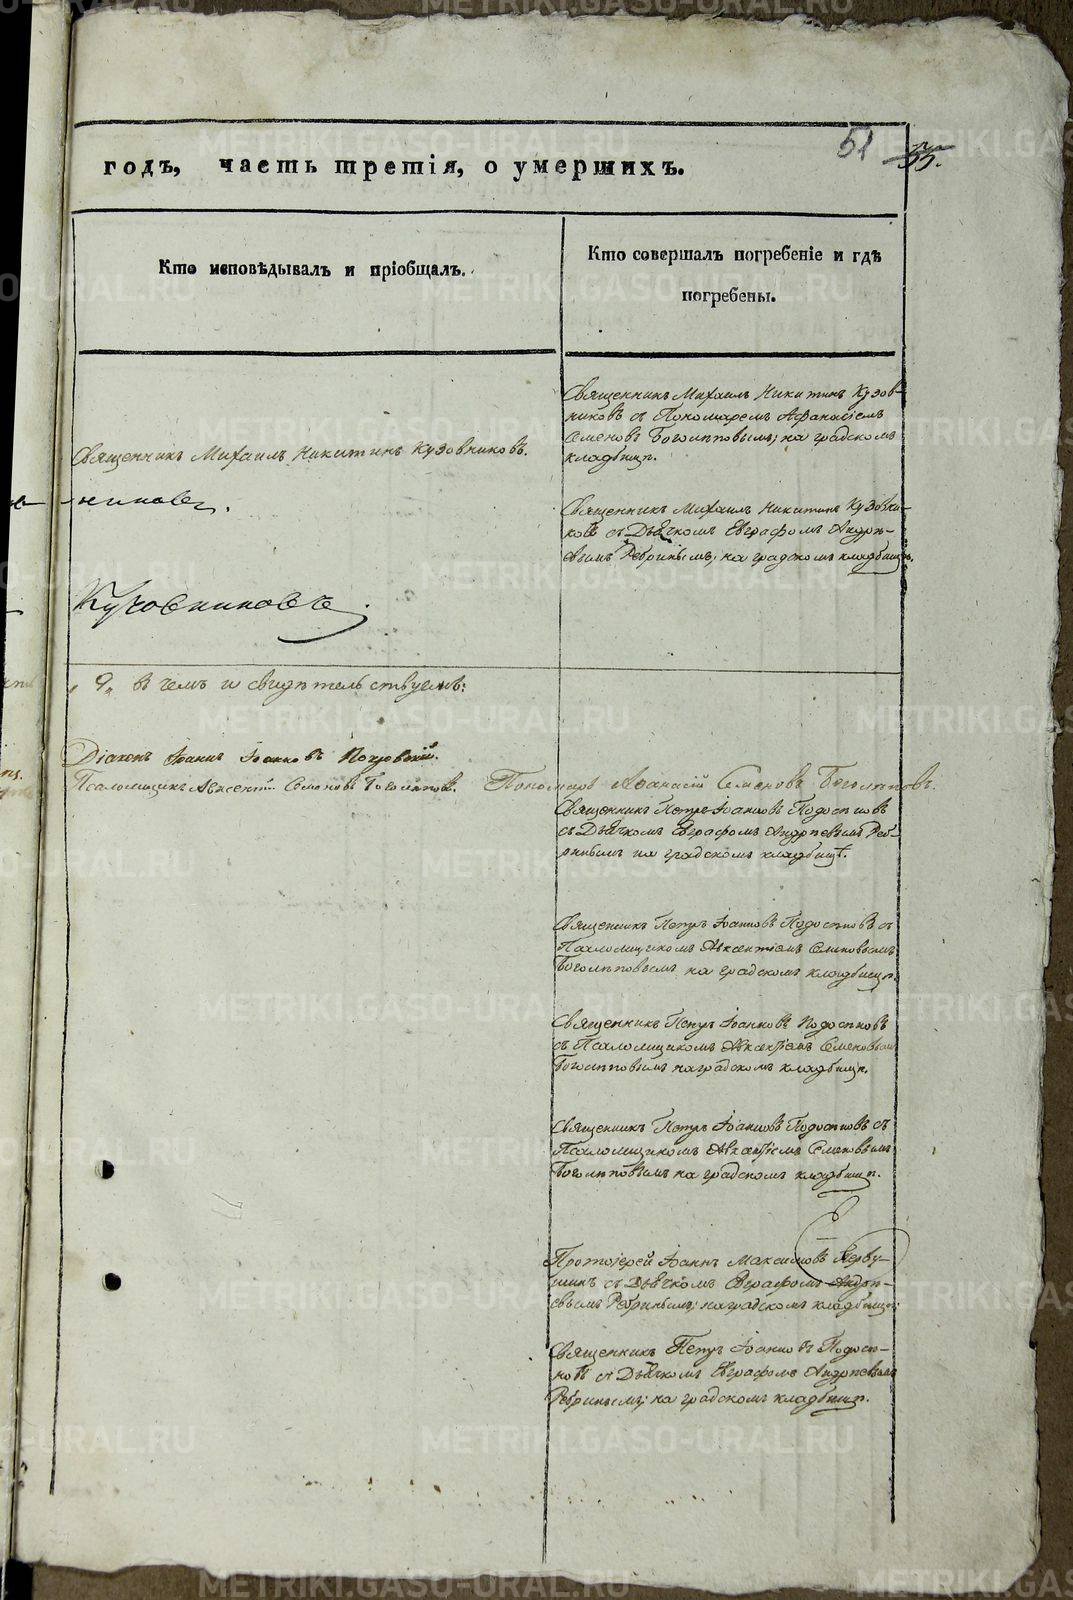 51
55.
годъ, часть третія, о умершихъ.
Кто исповѣдывалъ и пріобщалъ.
Кто совершалъ погребеніе и гдѣ
погребены.
Священникъ Михаилъ Никитинъ Кузов-
никовъ съ Пономаремъ Афанасіемъ
Семеновъ Боголѣповымъ; на градскомъ
кладбищѣ.
Священникъ Михаилъ Никитинъ Кузовниковъ.
-никовъ.
Священникъ Михаилъ Никитинъ Кузовни-
ковъ съ Дьячкомъ Евграфомъ Андрѣ-
евымъ Ребринымъ; на градскомъ кладбищѣ.
Кузовниковъ.
„9„ въ чемъ и свидѣтельствуемъ:
Діаконъ Іоаннъ Іоанновъ
Псаломщикъ Авксентій Семеновъ Боголѣповъ. Пономарь Афанасій Семеновъ Боголѣповъ.
Священникъ Петръ Іоанновъ Подосеновъ
съ Дьячкомъ Евграфомъ Андрѣевымъ Реб-
ринымъ на градскомъ кладбищѣ.
Священникъ Петръ Іоанновъ Подосеновъ съ
Псаломщикомъ Авксентіемъ Семеновымъ
Боголѣповымъ на градскомъ кладбищѣ.
Священникъ Петръ Іоанновъ Подосеновъ
съ Псаломщикомъ Авксентіемъ Семеновымъ
Боголѣповымъ на градскомъ кладбищѣ.
Священникъ Петръ Іоанновъ Подосеновъ съ
Псаломщикомъ Авксентіемъ Семеновымъ
Боголѣповымъ на градскомъ кладбищѣ.
Протоіерей Іоаннъ Максимовъ Перву-
шинъ съ Дьячкомъ Евграфомъ Андрѣ-
евымъ Ребринымъ; на градскомъ кладбищѣ;
Священникъ Петръ Іоанновъ Подосе-
новъ съ Дьячкомъ Евграфомъ Андрѣевымъ
Ребринымъ; на градскомъ кладбищѣ.
METRIKI.GASO-URAL.RU